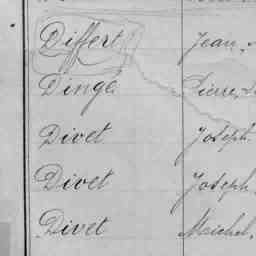 Differt Jean,
Dingé Pierre,
Divet Joseph
Divet Joseph
Divet Michel,